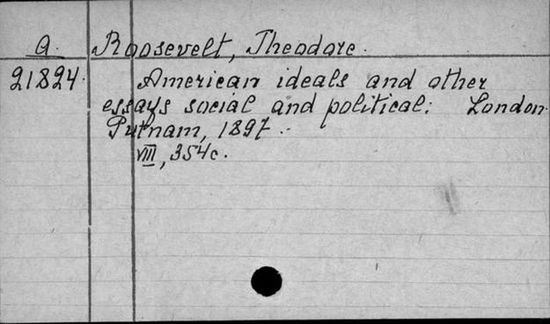 a. Roosevelt, Theodore.
21824. American ideals and other
essays social and political: London.
Putnam, 1897.
VIII, 354c.